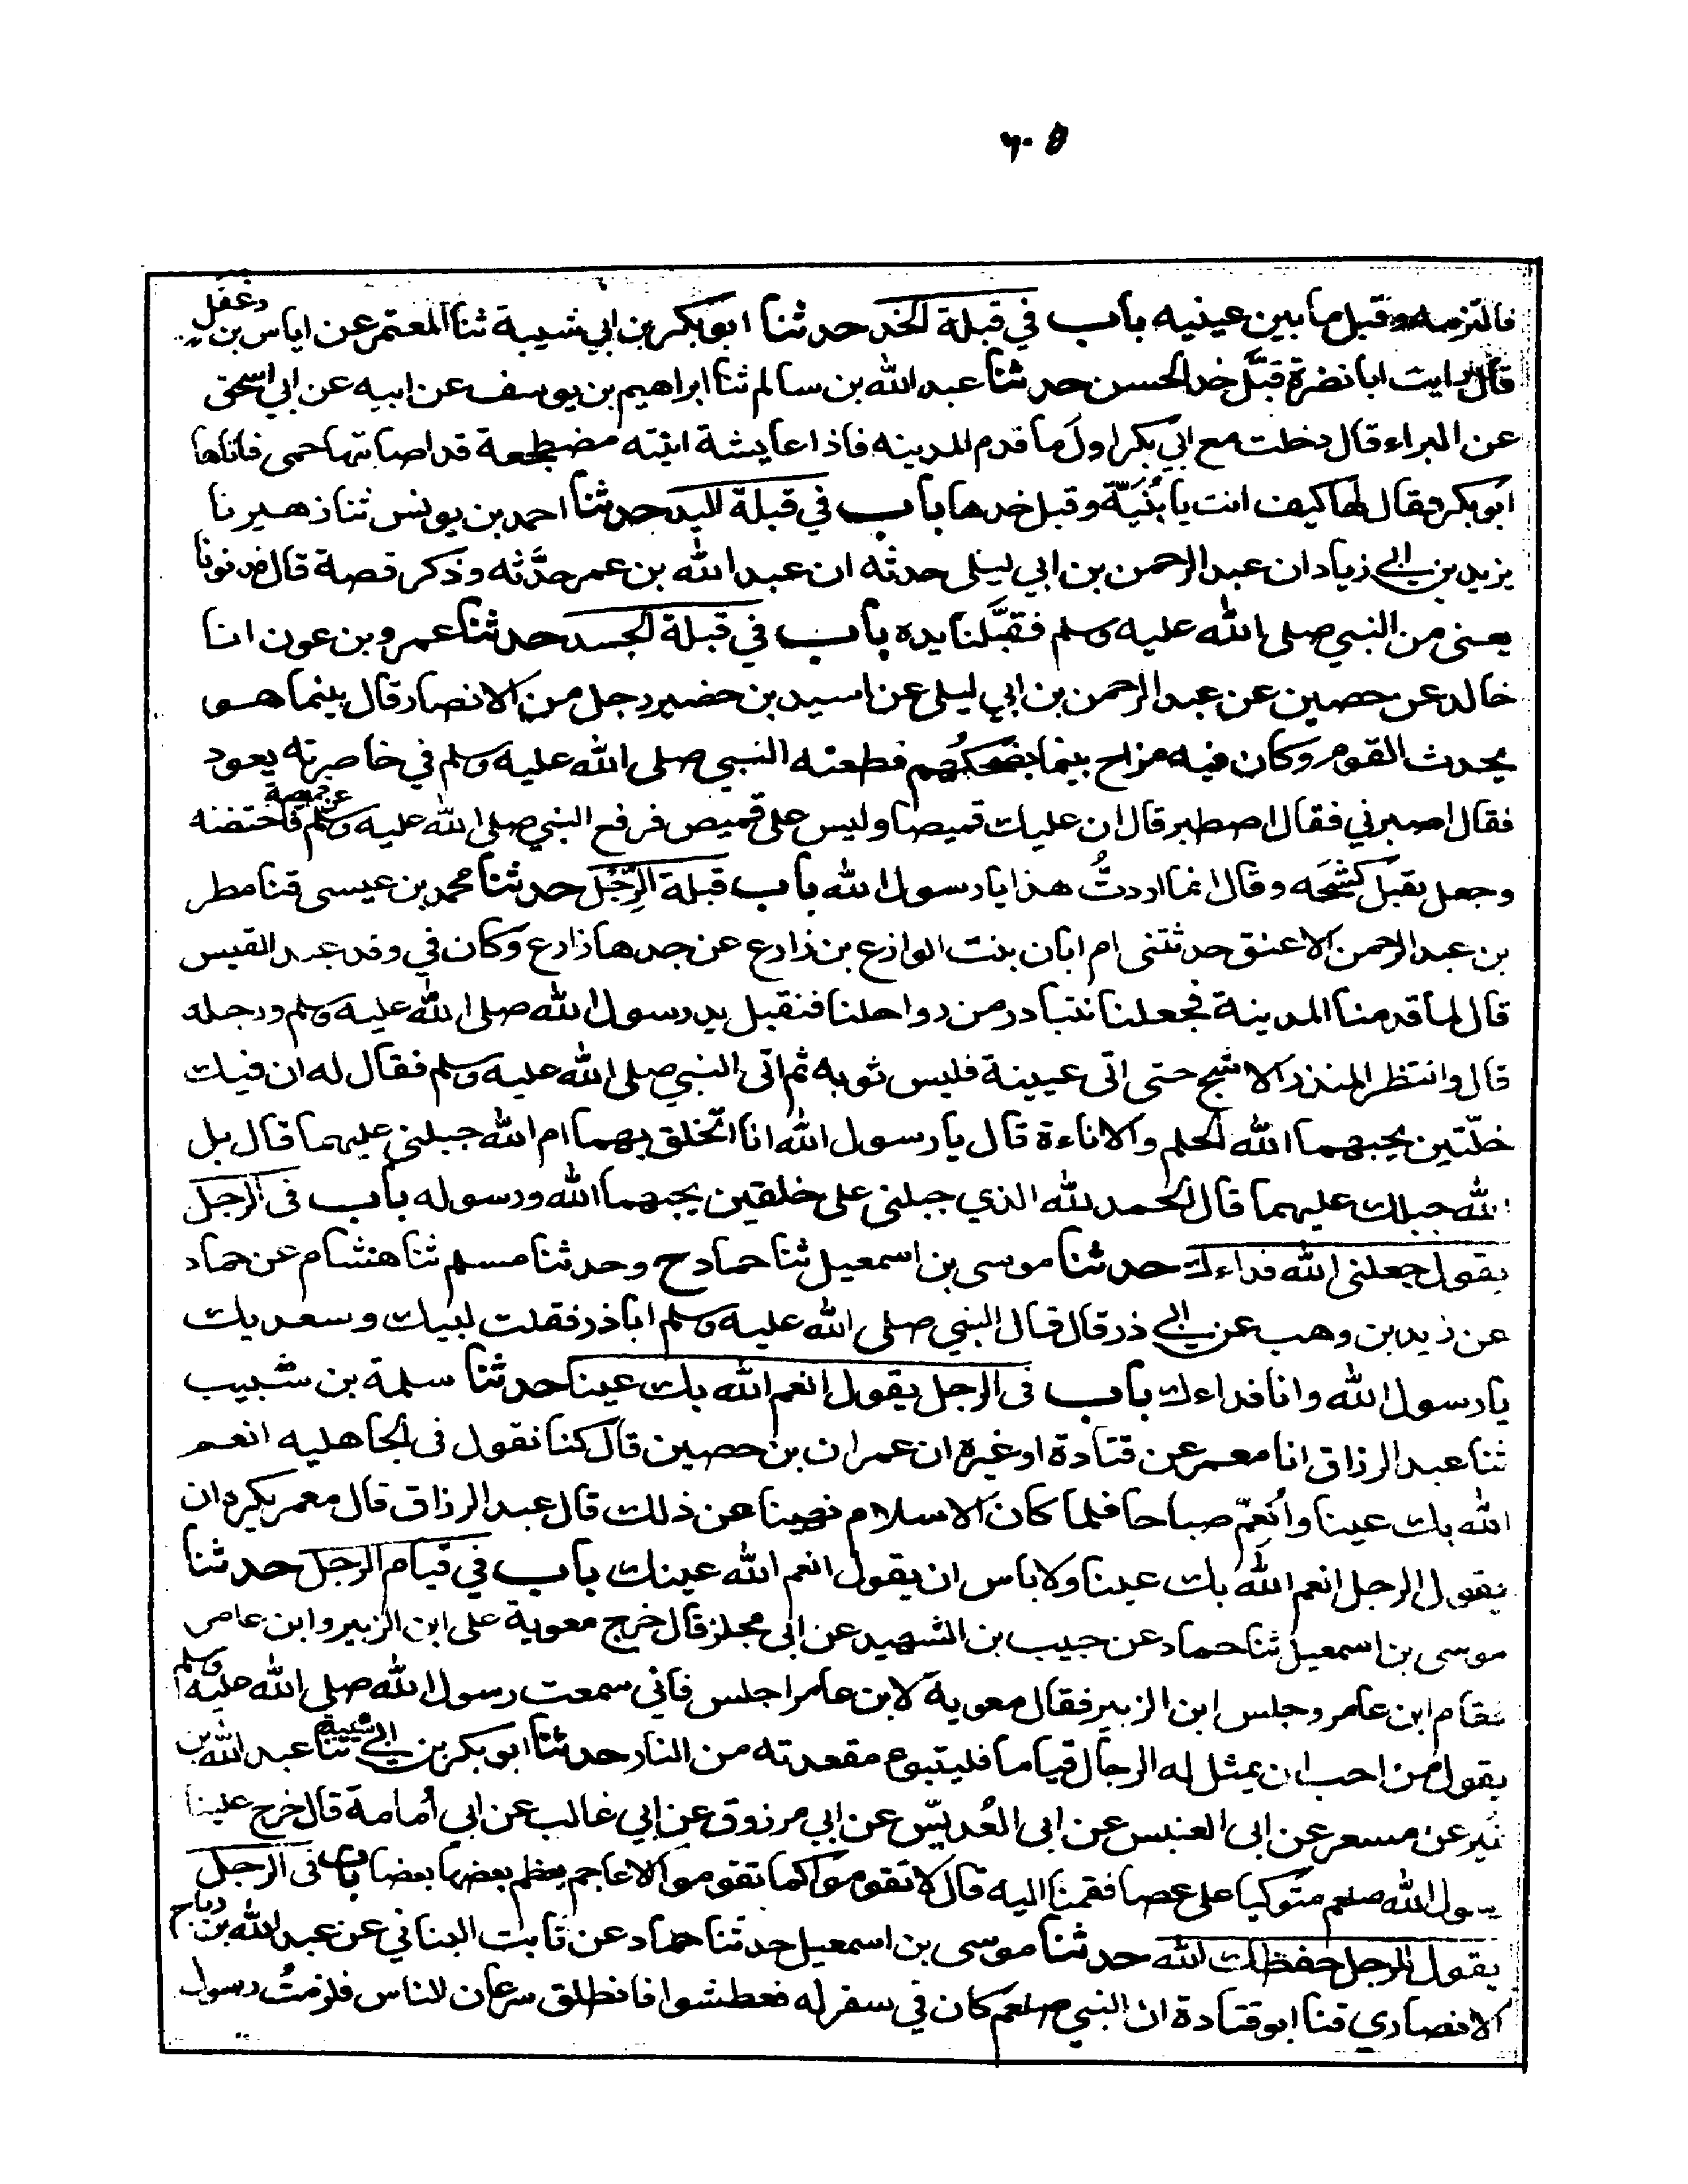 ٦٠٥
فالتزمه وقبل ما بين عينيه باب في قبلة الخد حدثنا ابو بكر بن ابي شيبة ثنا المعتمر عن اياس بن دغفل
قال رايت ابا نضرة قبَّل خد الحسن حدثنا عبد الله بن سالم ثنا ابراهيم بن يوسف عن ابيه عن ابي اسحق
عن البراء قال دخلت مع ابي بكر اول ما قدم المدينه فاذا عايشة ابنته مضطجعة قد اصابتها حمى فاتاها
ابو بكر فقال لها كيف انت يا بُنَيّة وقبل خدها باب في قبلة اليد حدثنا احمد بن يونس ثنا زهير نا
يزيد بن ابي زياد ان عبد الرحمن بن ابي ليلى حدثه ان عبد الله بن عمر حدَّثه وذكر قصة قال فدنونا
يعنى من النبي صلى الله عليه وسلم فقبَّلنا يده باب في قبلة الجسد حدثنا عمرو بن عون انا
خالد عن حصين عن عبد الرحمن بن ابي ليلى عن اسيد بن حضير رجل من الانصار قال بينما هو
يحدث القوم وكان فيه مزاح بينما يضحكهم فطعنه النبي صلى الله عليه وسلم في خاصرته بعود
فقال اصبرني فقال اصطبر قال ان عليك قميصا وليس على قميص فرفع النبي صلى الله عليه وسلم عن قميصه فاحتضنه
وجعل يقبل كشحَه وقال انما اردتُ هذا يا رسول الله باب قبلة الرِّجْل حدثنا محمد بن عيسى قثنا مطر
بن عبد الرحمن الاعنق حدثتنى ام ابان بنت الوازع بن زارع عن جدها زارع وكان في وفد عبد القيس
قال لما قدمنا المدينة فجعلنا نتبادر من رواحلنا فنقبل يد رسول الله صلى الله عليه وسلم ورجله
قال وانتظر المنذر الاشج حتى اتى عيبة فلبس ثوبه ثم اتى النبي صلى الله عليه وسلم فقال له ان فيك
خلّتين يحبهما الله الحلم والاناءة قال يا رسول الله انا اتخلق بهما ام الله جبلنى عليهما قال بل
الله جبلك عليهما قال الحمد لله الذي جبلنى على خلقين يحبهما الله ورسوله باب فى الرجل
يقول جعلنى الله فداءك حدثنا موسى بن اسمعيل ثنا حماد ح وحدثنا مسلم ثنا هشام عن حماد
عن زيد بن وهب عن ابي ذر قال قال النبي صلى الله عليه وسلم ابا ذر فقلت لبيك وسعديك
يا رسول الله وانا فداءك باب فى الرجل يقول انعم الله بك عينا حدثنا سلمة بن شبيب
ثنا عبد الرزاق انا معمر عن قتادة او غيره ان عمران بن حصين قال كنا نقول فى الجاهليه انعم
الله بك عينا وانْعِمْ صباحا فلما كان الاسلام نهينا عن ذلك قال عبد الرزاق قال معمر يكره ان
يقول الرجل انعم الله بك عينا ولا باس ان يقول انعم الله عينك باب في قيام الرجل حدثنا
موسى بن اسمعيل ثنا حماد عن حبيب بن الشهيد عن ابى مجلز قال خرج معوية على ابن الزبير وابن عامر
فقام ابن عامر وجلس ابن الزبير فقال معوية لابن عامر اجلس فاني سمعت رسول الله صلى الله عليه وسلم
يقول من احب ان يمثل له الرجال قياما فليتبوء مقعدته من النار حدثنا ابو بكر بن ابي شيبة ثنا عبد الله بن
نمير عن مسعر عن ابى العنبس عن ابى العُدبّس عن ابي مرزوق عن ابي غالب عن ابى أمامة قال خرج علينا
رسول الله صلعم متوكيا على عصا فقمنا اليه قال لا تقوموا كما تقوموا الاعاجم يعظم بعضها بعضا باب فى الرجل
يقول للرجل حفظك الله حدثنا موسى بن اسمعيل حدثنا حماد عن ثابت البناني عن عبد الله بن رباح
الانصاري قثنا ابو قتادة ان النبي صلعم كان في سفر له فعطشوا فانطلق سرعان الناس فلزمتُ رسول